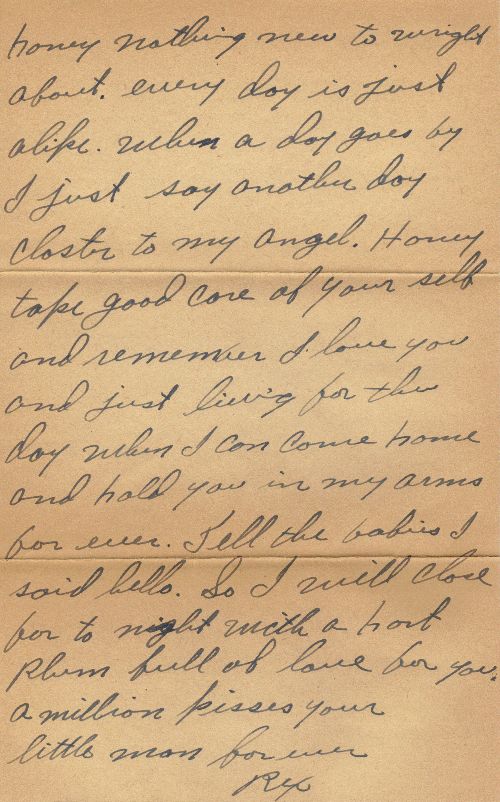 honey nothing new to wright
about. every day is just
alike. when a day goes by
I just say another day
closter to my angel. Honey
take good care of your self
and remember I love you
and just liveing for the
day when I can come home
and hold you in my arms
for ever. Tell the babies I
said hello. So I will close
for to night with a hart
plum full of love for you.
a million kisses your
little man for ever
Rex